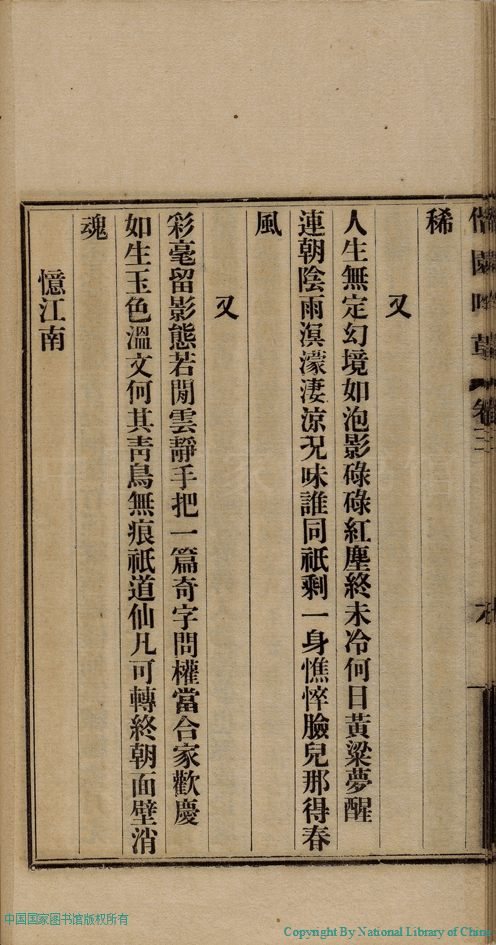 稀
又
人生無定幻境如泡影碌碌紅塵終未冷何日黃粱夢醒
連朝陰雨溟濛淒涼况味誰同祇剩一身憔悴臉兒那得春
風
又
彩毫留影態若閒雲靜手把一篇奇字問權當合家歡慶
如生玉色溫文何其靑鳥無痕祇道仙凡可轉終朝面壁消
魂
憶江南
中国国家图书馆版权所有
Copyright By National Library of China